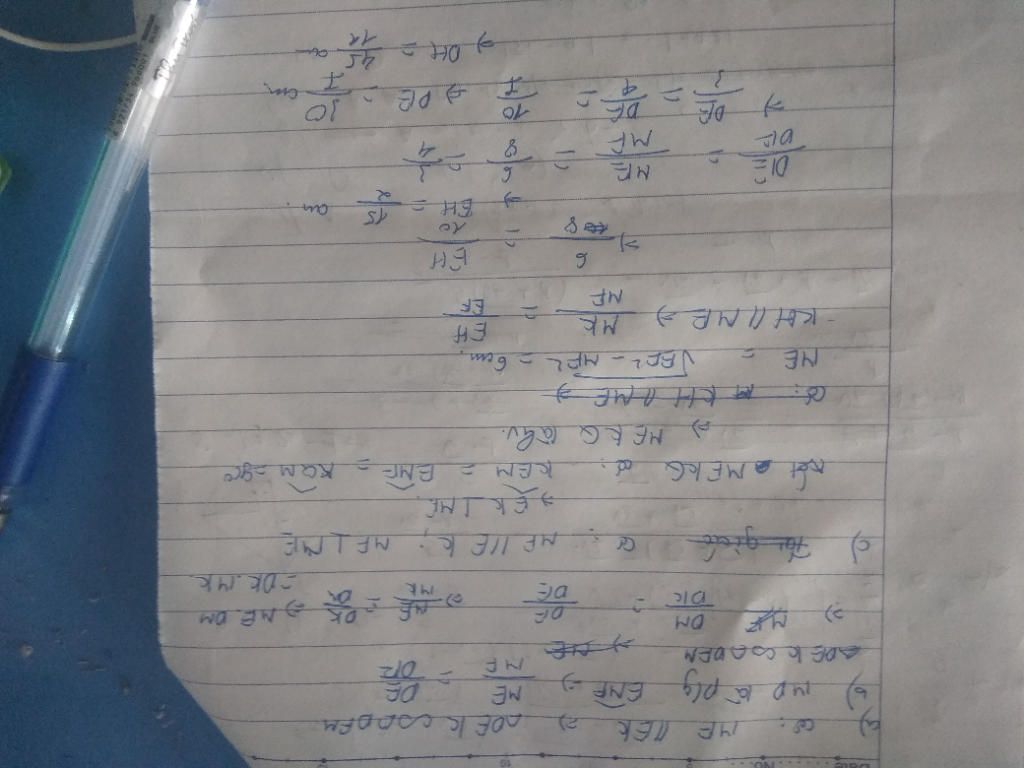 Date ........ No. ........
a) Có: MF // EK ⇒ ΔDEK ∽ ΔDFM
b) MD là p/g EMF ⇒ ME/MF = DE/DF
ΔDEK ∽ ΔDFM
⇒ DM/DK = DF/DE ⇒ MF/ME = DM/DK ⇒ ME.DM
= DK.MF
c) Có: MF // EK; MF ⊥ ME
⇒ EK ⊥ ME
Xét MEKQ có: KEM = EMF = KQM = 90°
⇒ MEKQ là hv.
ME = √EF² − MF² = 6cm.
KH // ME ⇒ MK/MF = EH/EF
⇒ 6/8 = EH/10
⇒ EH = 15/2 cm.
DE/DF = ME/MF = 6/8 = 3/4
⇒ DE/3 = DF/4 = 10/7 ⇒ DE = 30/7 cm
⇒ DH = 45/14 cm